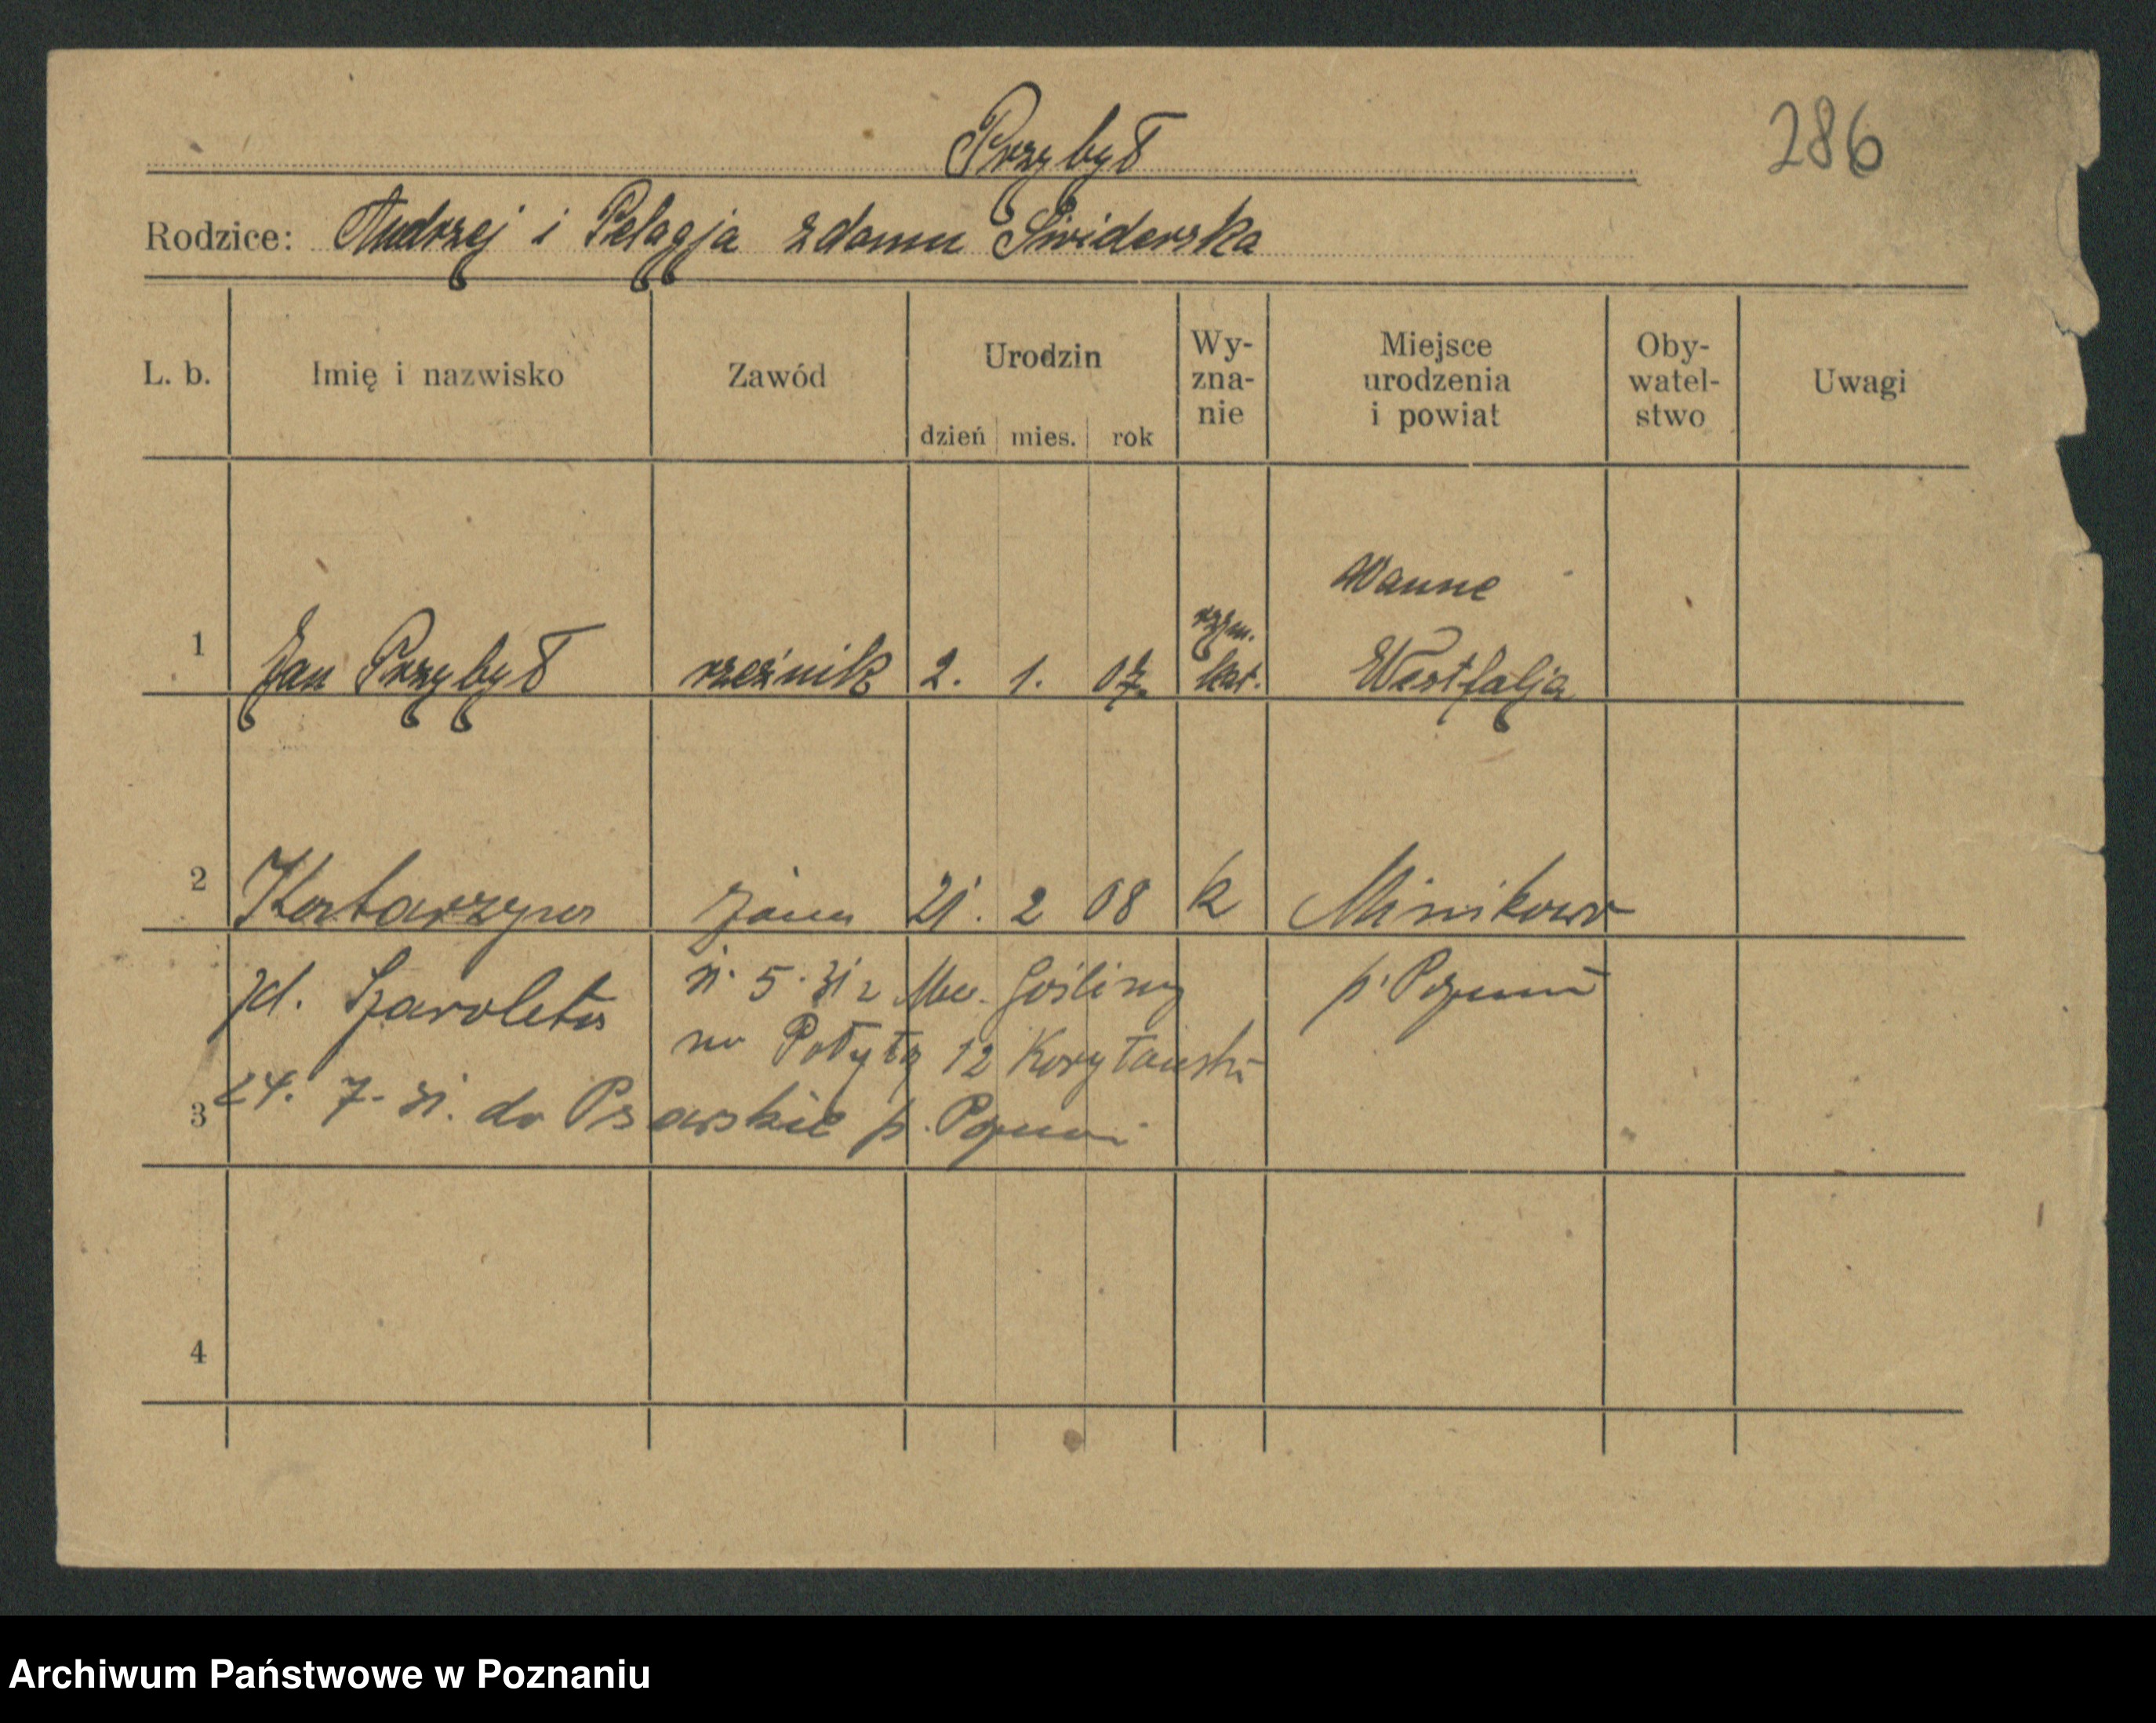 286
Przybył
Rodzice: Andrzej i Pelagja z domu Świderska
L. b. Imię i nazwisko Zawód Urodzin dzień mies. rok Wy- zna- nie Miejsce urodzenia i powiat Oby- watel- stwo Uwagi
Wanne
1 Jan Przybył rzeźnik 2. 1. 07. rzym. kat. Westfalja
2 Katarzyna żona 21. 2 08 k Minikowo
zd. Szaroleta 11. 5. 31 z Mur. Gośliny p. Poznań
na 12
3 24. 7. 31. do Psarskie p. Poznań
4
Archiwum Państwowe w Poznaniu